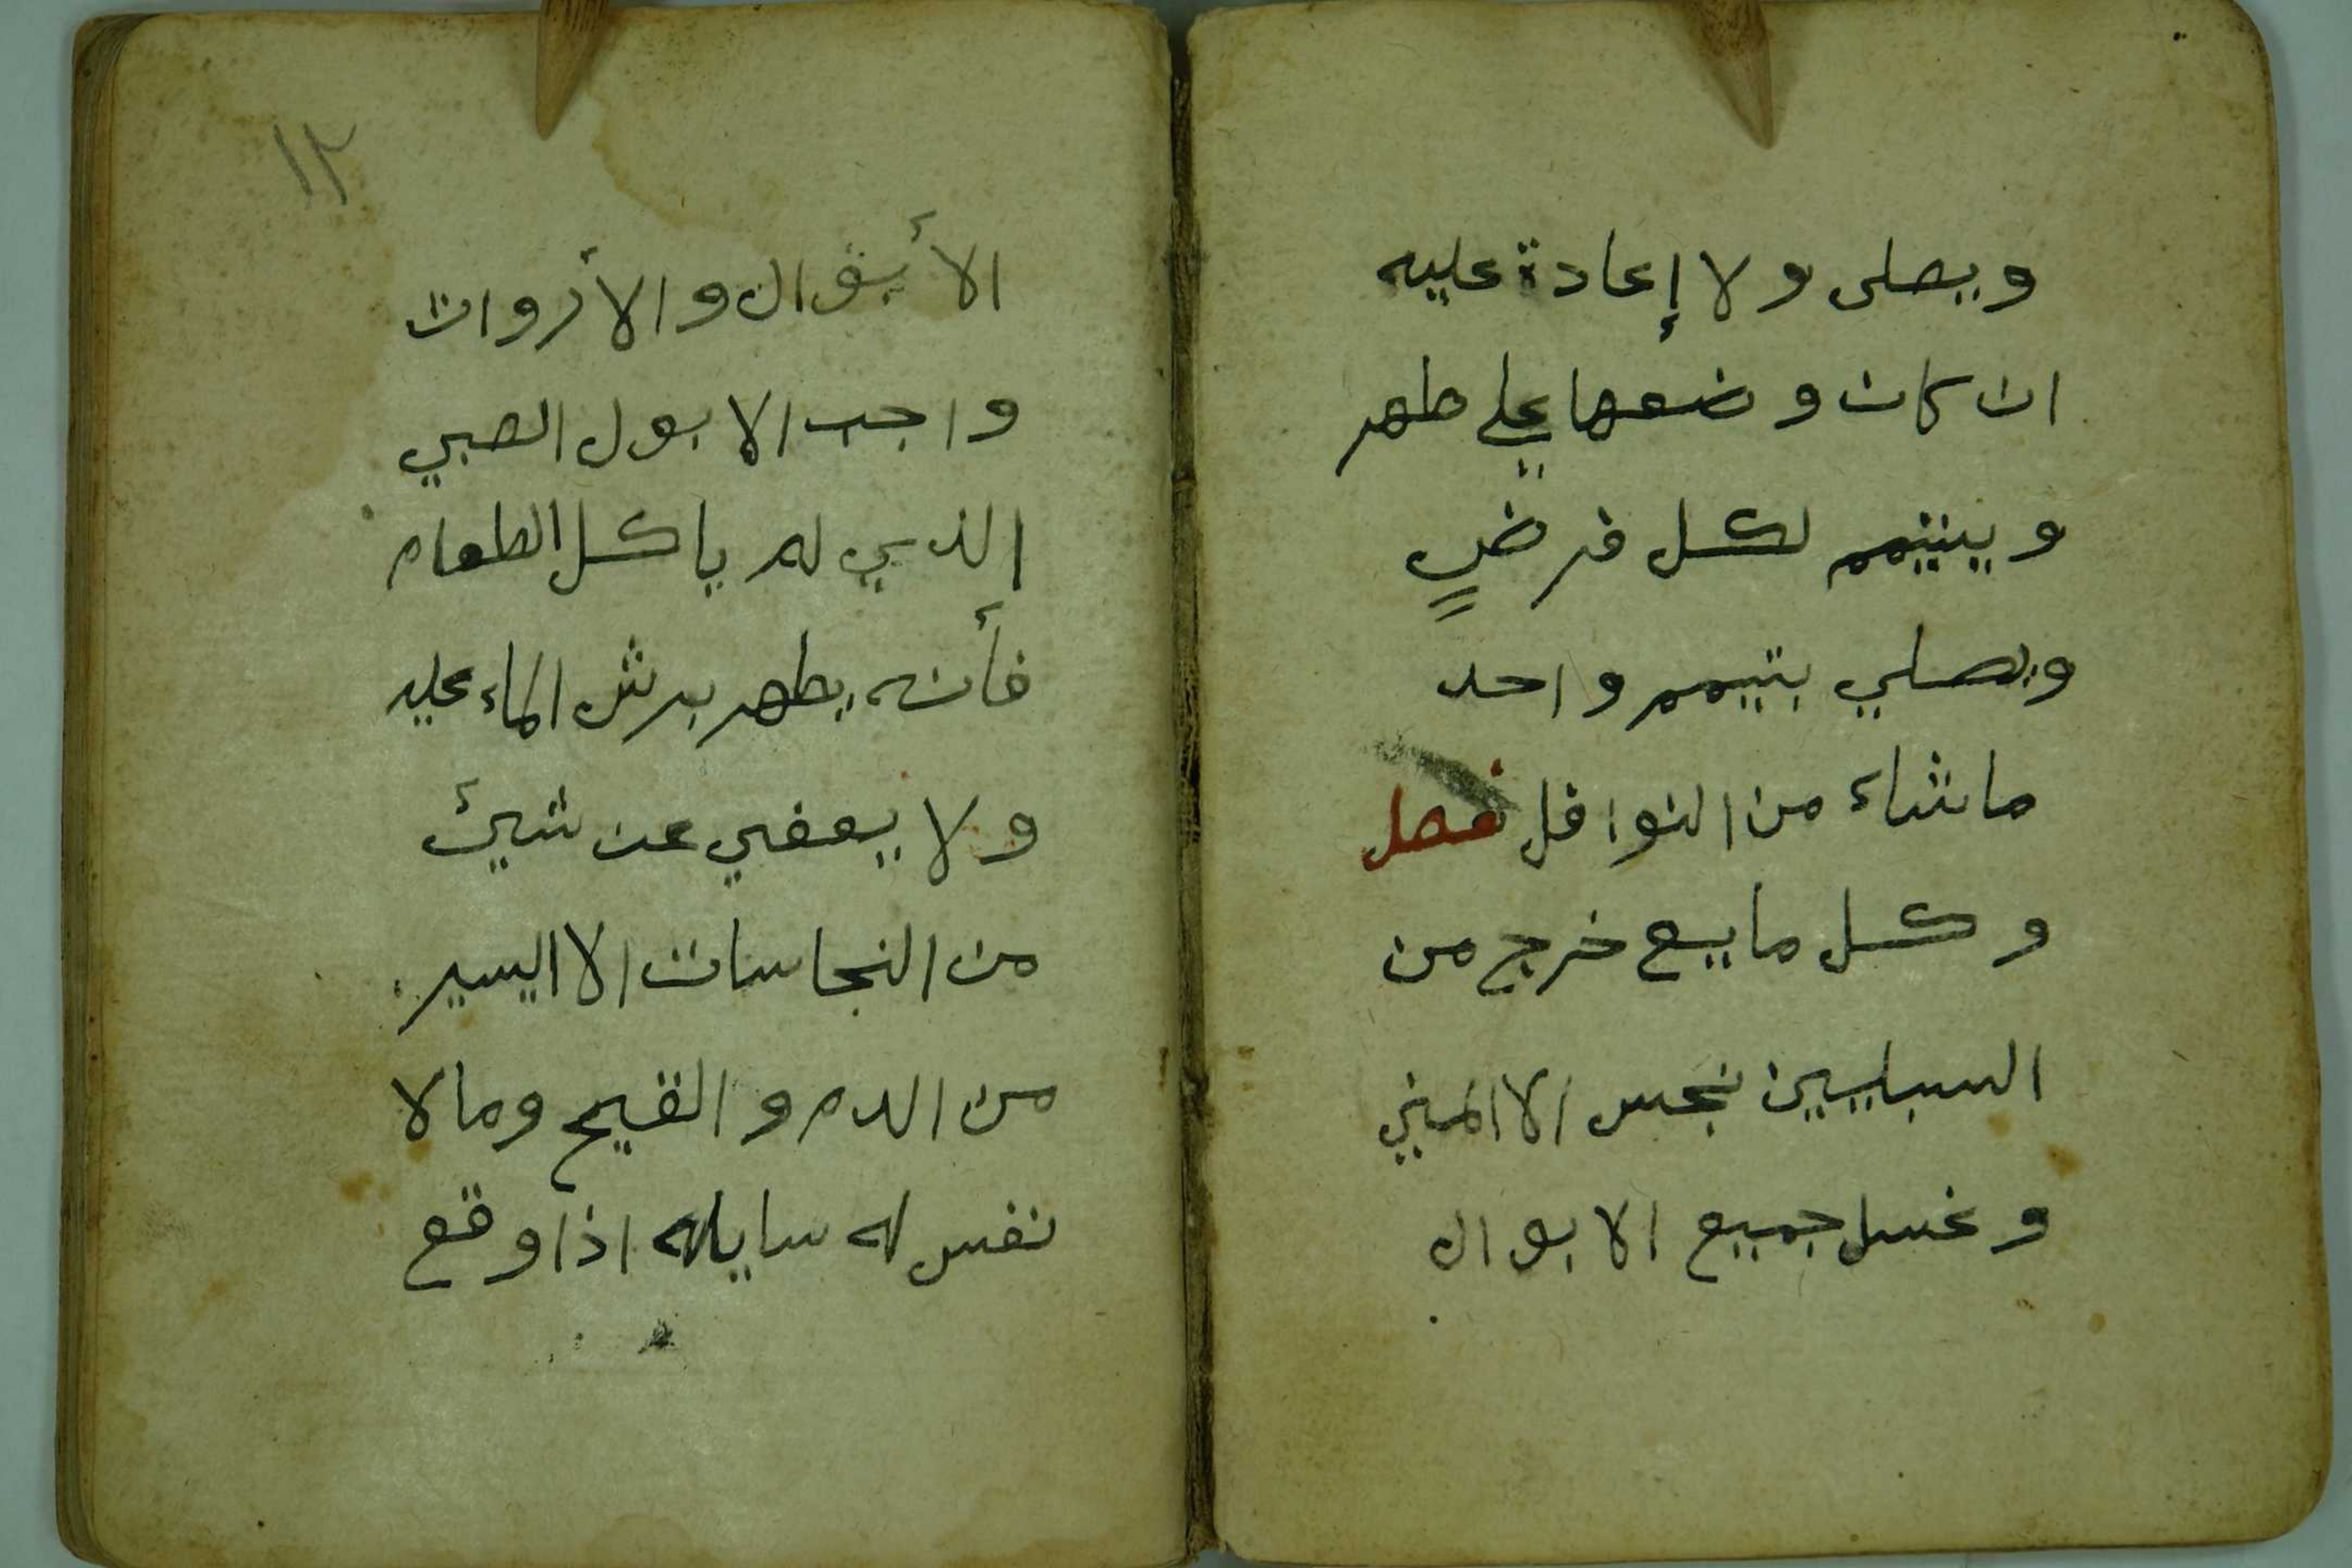 ويصلى ولا إعادة عليه
ان كان وضعها علي طهر
ويتيمم لكل فرضٍ
ويصلي بتيمم واحد
ما شاء من النوافل فصل
وكل مايع خرج من
السبليين نجس الا المني
وغسل جميع الابوال
١٢
الأبوال والأروات
واجب الا بول الصبي
الذي لم ياكل الطعام
فأنه يطهر برش الماء عليه
ولا يعفي عن شيئ
من النجاسات الا اليسير
من الدم والقيح وما لا
نفس له سايله اذا وقع